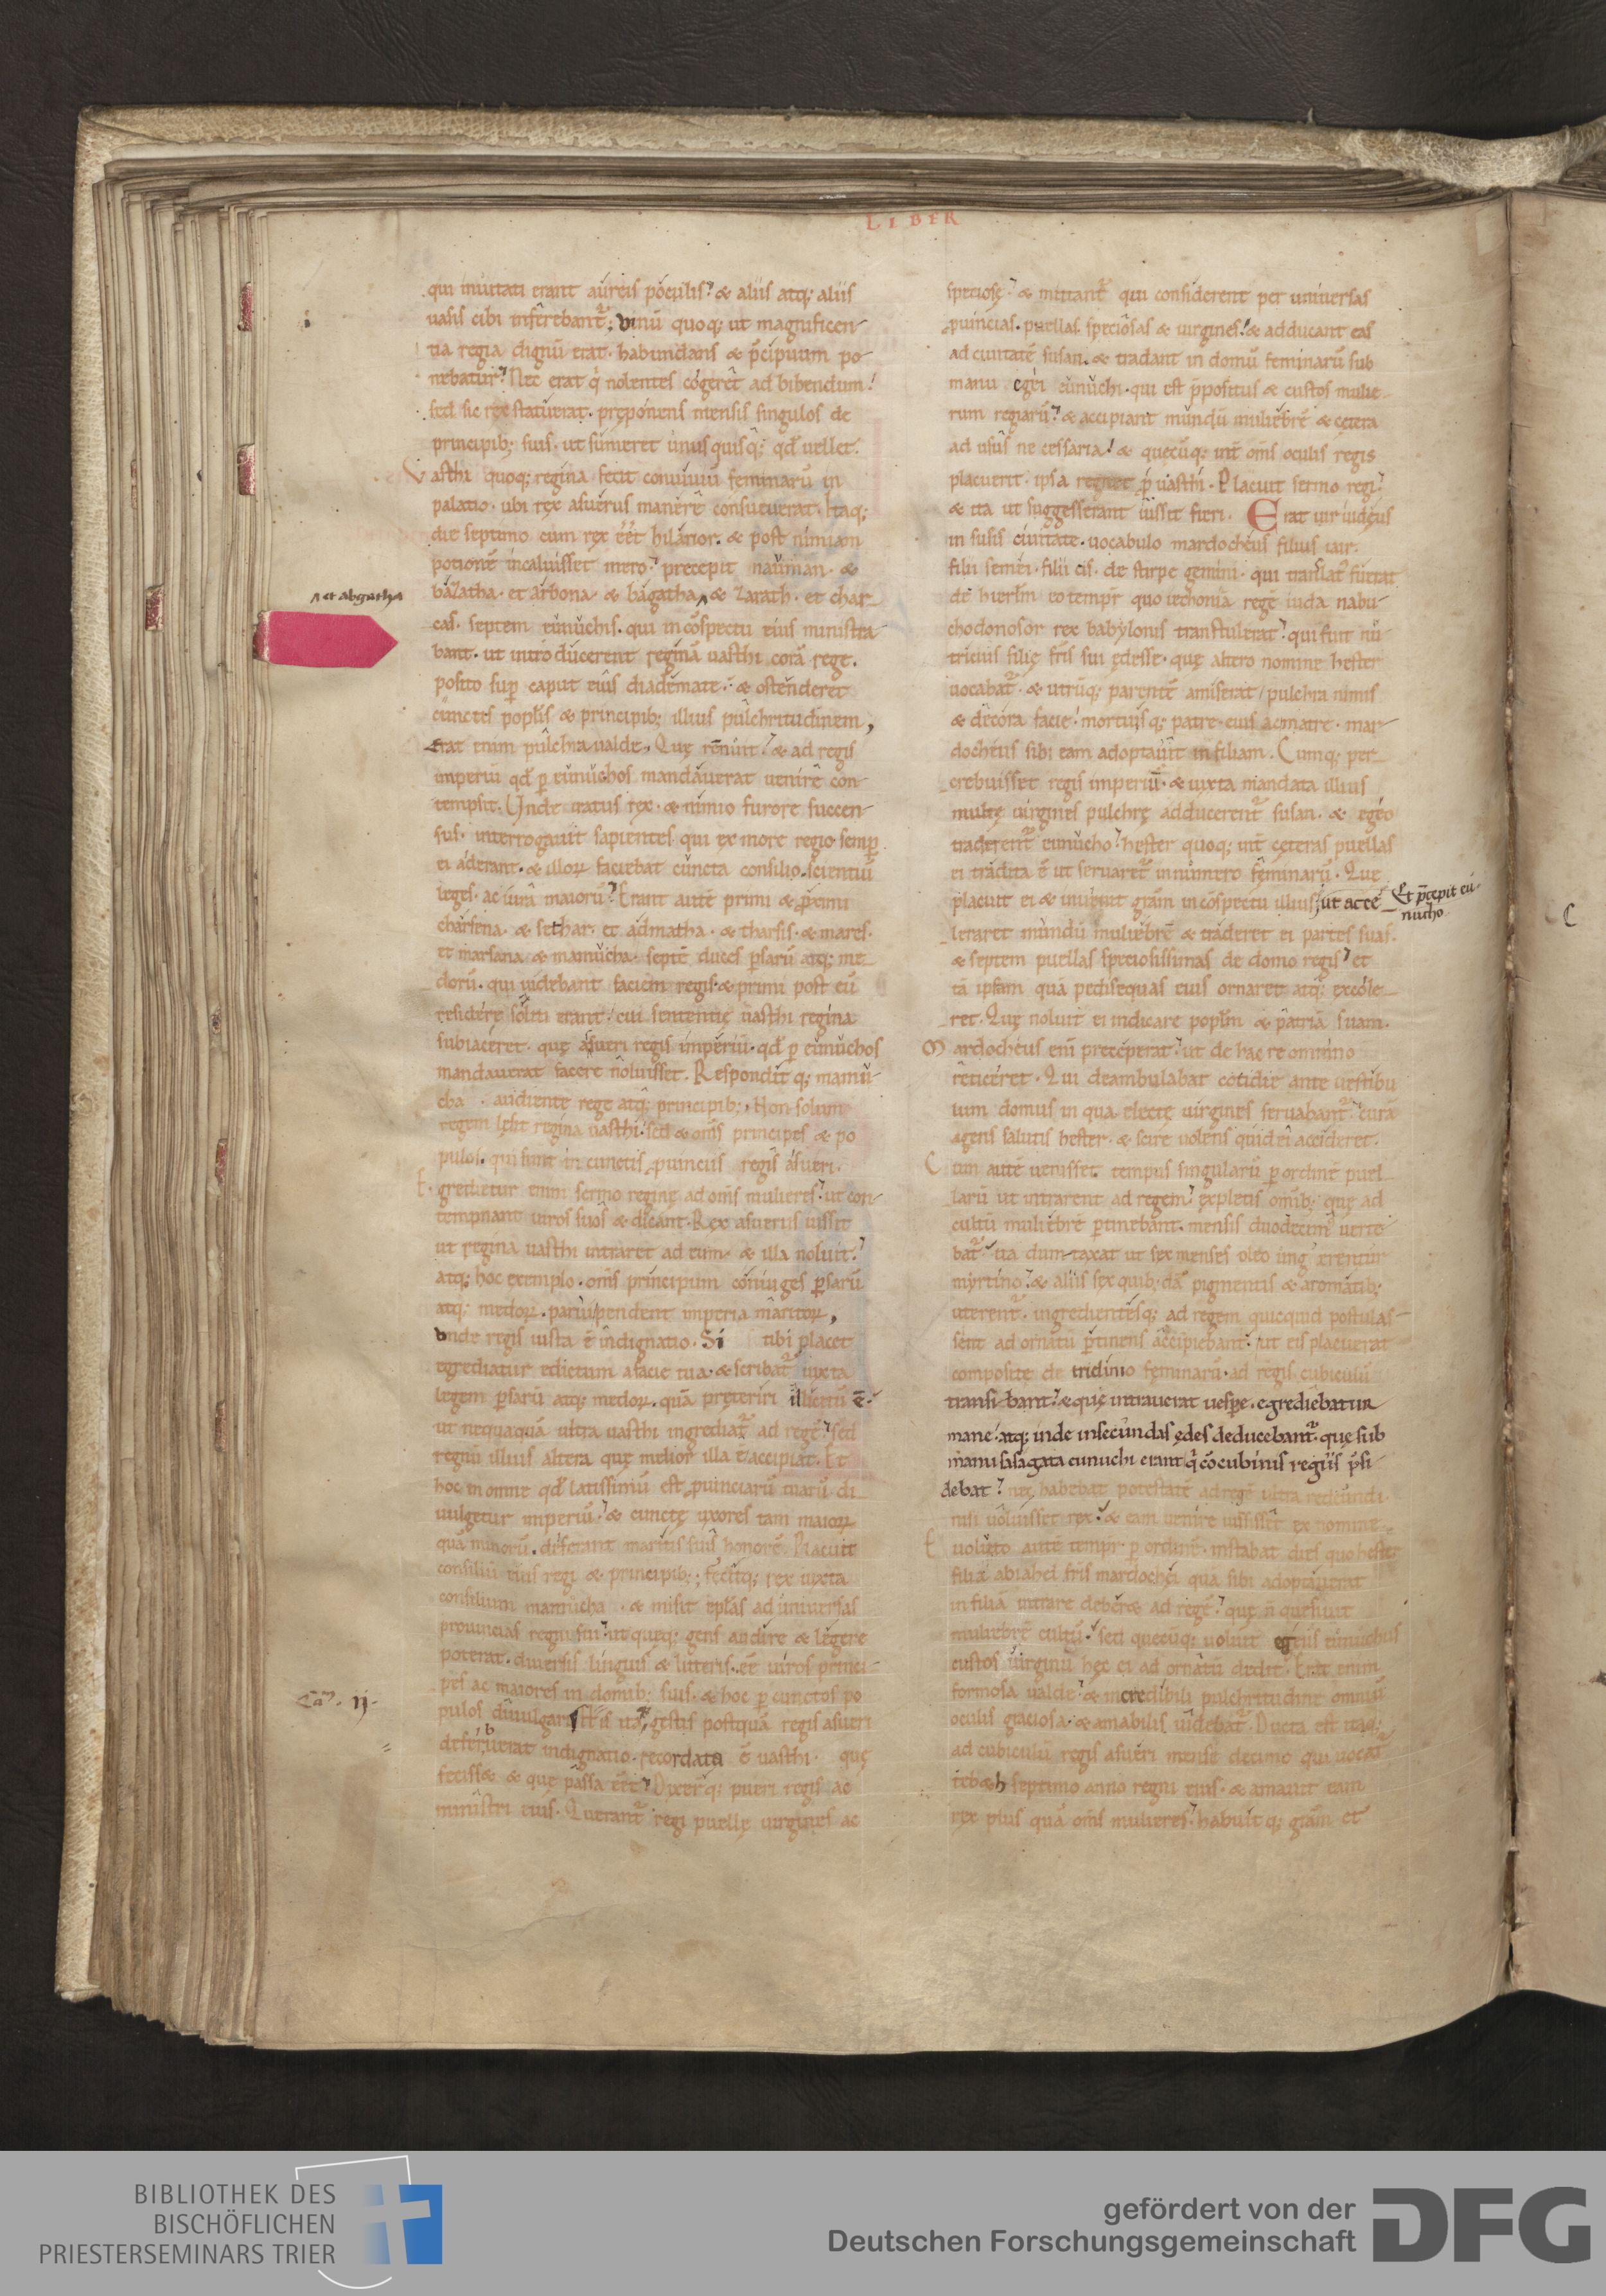 LIBER
qui inuitati erant aureis poculis. & aliis atq; aliis
uasis cibi inferebant᷑; vinū quoq; ut magnificen-
tia regia dignū erat. habundans & p̄cipuum po-
nebatur. Nec erat q̇ nolentes cogeret ad bibendum.
sed sic rex statuerat. pręponens mensis singulos de
principib; suis. ut sumeret unusquisq; qd̄ uellet.
Vasthi quoq; regina fecit conuiuiū feminarū in
palatio. ubi rex asuerus manere consueuerat. Itaq;
die septimo cum rex ēēt hilarior. & post nimiam
potionē incaluisset mero. precepit nauman. &
bazatha. et arbona. & bagatha & zarath. et char-
^ et abgatha
cas. septem eunuchis. qui in cōspectu eius ministra-
bant. ut introducerent reginā uasthi corā rege.
posito sup̄ caput eius diademate. & ostenderet
cunctis popl̄is & principib; illius pulchritudinem,
erat enim pulchra ualde, Quę rēnuit. & ad regis
imperiū qd̄ p̄ eunuchos mandauerat uenire con-
tempsit. Unde iratus rex. & nimio furore succen-
sus. interrogauit sapientes qui ex more regio semp̄
ei aderant. & illoꝝ faciebat cuncta consilio scientiū
leges. ac iura maiorū. Erant autē primi & proximi
charsena. & sethar. et admatha. & tharsis. & mares.
et marsana & mamucha. septē duces p̄sarū atq; me-
dorū. qui uidebant faciem regis. & primi post eū
residere soliti erant. cui sententię uasthi regina
subiaceret. quę asueri regis imperiū. qd̄ p̄ eunuchos
mandauerat facere noluisset. Respondit q; mamu-
cha. audiente rege atq; principib;. Non solum
regem lęsit regina uasthi. sed & om̄s principes & po
pulos. qui sunt in cunctis prouinciis regis asueri.
Egredietur enim sermo reginę ad om̄s mulieres. ut con-
tempnant uiros suos & dicant. Rex asuerus iussit
ut regina uasthi intraret ad eum. & illa noluit.
atq; hoc exemplo. om̄s principum coniuges p̄sarū
atq; medoꝝ. paruipendent imperia maritoꝝ,
vnde regis iusta ē indignatio. Si tibi placet
egrediatur edictum a facie tua. & scribat᷑ iuxta
legem p̄sarū atq; medoꝝ. quā pręteriri illicitū ē.
ut nequaquā ultra uasthi ingrediat᷑ ad regē. sed
regnū illius altera quę melior illa ē accipiat. Et
hoc in omne qd̄ latissimū est prouinciarū tuarū. di-
uulgetur imperiū. & cunctę uxores tam maioꝝ
quā minorū. deferant maritis suis honorē. Placuit
consiliū eius regi & principib;; fecitq; rex iuxta
consilium mamucha. & misit ep̄las ad uniuersas
prouincias regni sui. ut quęq; gens audire & legere
poterat. diuersis linguis & litteris. eē uiros princi-
pes ac maiores in domib; suis. & hoc p̄ cunctos po
Ca. ij.
pulos diuulgari. His ita gestis postquā regis asueri
deferbuerat indignatio. recordata ē uasthi. quę
fecisset & quę passa eēt. Dixer̄q; pueri regis ac
ministri eius. Querant᷑ regi puellę uirgines ac
speciosę. & mittant᷑ qui considerent per uniuersas
prouincias. puellas speciosas & uirgines. & adducant eas
ad ciuitatē susan. & tradant in domū feminarū sub
manu egei eunuchi. qui est p̄positus & custos mulie-
rum regiarū. & accipiant mundū muliebrē & cetera
ad usus necessaria. & quęcūq; int̄ om̄s oculis regis
placuerit. ipsa regnet p̄ uasthi. Placuit sermo regi.
& ita ut suggesserant iussit fieri. Erat uir iudęus
in susis ciuitate. uocabulo mardocheus filius iair.
filii semei. filii cis. de stirpe gemini. qui translat᷑ fuerat
de hierl̄m eo tempr̄ quo iechonia regē iuda nabu-
chodonosor rex babylonis transtulerat. qui fuit nu-
tricius filię fr̄is sui ędesse. quę altero nomine hester
uocabat᷑. & utrūq; parentē amiserat. pulchra nimis
& decora facie. mortuisq; patre eius ac matre. mar-
docheus sibi eam adoptauit in filiam. Cumq; per-
crebuisset regis imperiū. & iuxta mandata illius
multę uirgines pulchrę adducerent᷑ susan. & egeo
traderent᷑ eunucho. hester quoq; int̄ ceteras puellas
ei tradita ē ut seruaret᷑ in numero feminarū. Que
placuit ei & inuenit gr̄am in cōspectu illius. ut acce-
Et p̄cepit eu-
nucho
leraret mundū muliebrē & traderet ei partes suas.
& septem puellas speciosissimas de domo regis. et
tā ipsam quā pedisequas eius ornaret atq; excole-
ret. Quę noluit ei indicare popl̄m & patriā suam.
Mardocheus eni preceperat. ut de hac re omnino
reticeret. Qui deambulabat cotidie ante uestibu
lum domus in qua electę uirgines seruabant᷑. curā
agens salutis hester. & scire uolens quid ei accideret.
Cum autē uenisset tempus singularū p̄ ordinē puel
larū ut intrarent ad regem. expletis om̄ib; quę ad
cultū muliebrē p̄tinebant. mensis duodecim᷒ uerte
bat᷑. ita dumtaxat ut sex menses oleo ungerentur
myrtino. & aliis sex quib;dā pigmentis & aromatib;
uterent᷑. ingredientesq; ad regem quicquid postulas-
sent ad ornatū p̄tinens accipiebant. ut eis placuerat
composite de triclinio feminarū. ad regis cubiculū
transibant. & quę intrauerat uesp̄e. egrediebatur
mane. atq; inde in secundas ędes deducebant᷑. quę sub
manu sasagata eunuchi erant q̇ cōcubinis regiis p̄si-
debat. nec habebat potestatē ad regē ultra redeundi.
nisi uoluisset rex. & eam uenire iussisset ex nomine.
Euoluto autē tempr̄ p̄ ordinē. instabat dies quo hester
filia abiahel fr̄is mardochei quā sibi adoptauerat
in filiā intrare deberet ad regē. quę n̄ quesiuit
muliebrē cultū. sed quecūq; uoluit egeus eunuchus
custos uirginū hęc ei ad ornatū dedit. Erat enim
formosa ualde. & incredibili pulchritudine omniū
oculis graciosa. & amabilis uidebat᷑. Ducta est itaq;
ad cubiculū regis asueri mense decimo qui uocat᷑
tebeth septimo anno regni eius. & amauit eam
rex plus quā om̄s mulieres. habuitq; gr̄am et
BIBLIOTHEK DES
BISCHÖFLICHEN
PRIESTERSEMINARS TRIER
gefördert von der
Deutschen Forschungsgemeinschaft
DFG